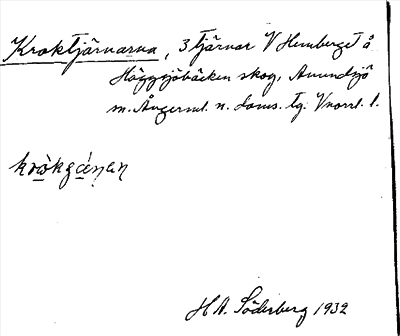 Kroktjärnarna, 3 tjärnar V Hemberget å
Häggsjöbäcken skog, Anundsjö
m. Ångerml. n. doms. tg. Vnorrl. l.
kròkgánan
H A. Söderberg 1932